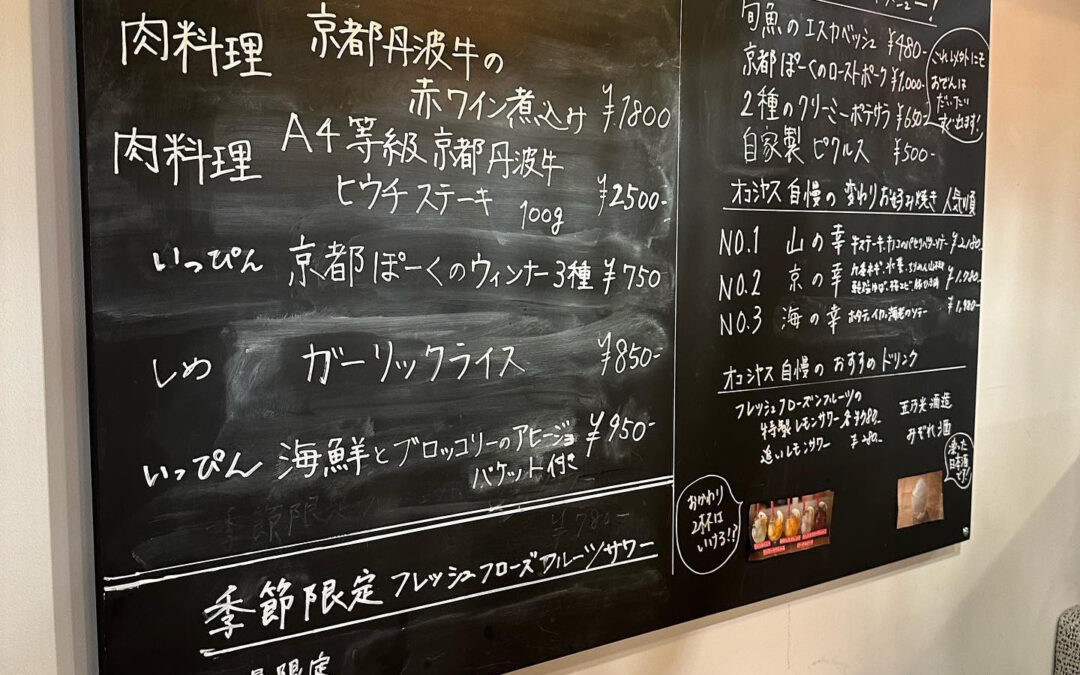 肉料理 京都丹波牛の
赤ワイン煮込み ¥1800
肉料理 A4等級京都丹波牛
ヒウチステーキ 100g ¥2500-
いっぴん 京都ぽーくのウィンナー3種 ¥750
しめ ガーリックライス ¥850-
いっぴん 海鮮とブロッコリーのアヒージョ ¥950-
バケット付き
季節限定
¥780-
季節限定 フレッシュフローズンフルーツサワー
限定
旬魚のエスカベッシュ ¥480-
京都ぽーくのローストポーク ¥1,000-
2種のクリーミーポテサラ ¥650-
自家製ピクルス ¥500-
これ以外にも
おでんは
だいたい
すぐ出ます!
オコシヤス自慢の変わりお好み焼き 人気順
NO.1 山の幸 ¥2,180-
NO.2 京の幸 九条ネギ、水菜、ちりめん山椒 ¥1,980-
NO.3 海の幸 ホタテ、イカ、海老のソテー ¥1,980-
オコシヤス自慢のおすすめドリンク
フレッシュフローズンフルーツの
特製レモンサワー
追いレモンサワー ¥280-
酒造
みぞれ酒
凍った
日本酒
です!
おかわり
2杯は
いける!?